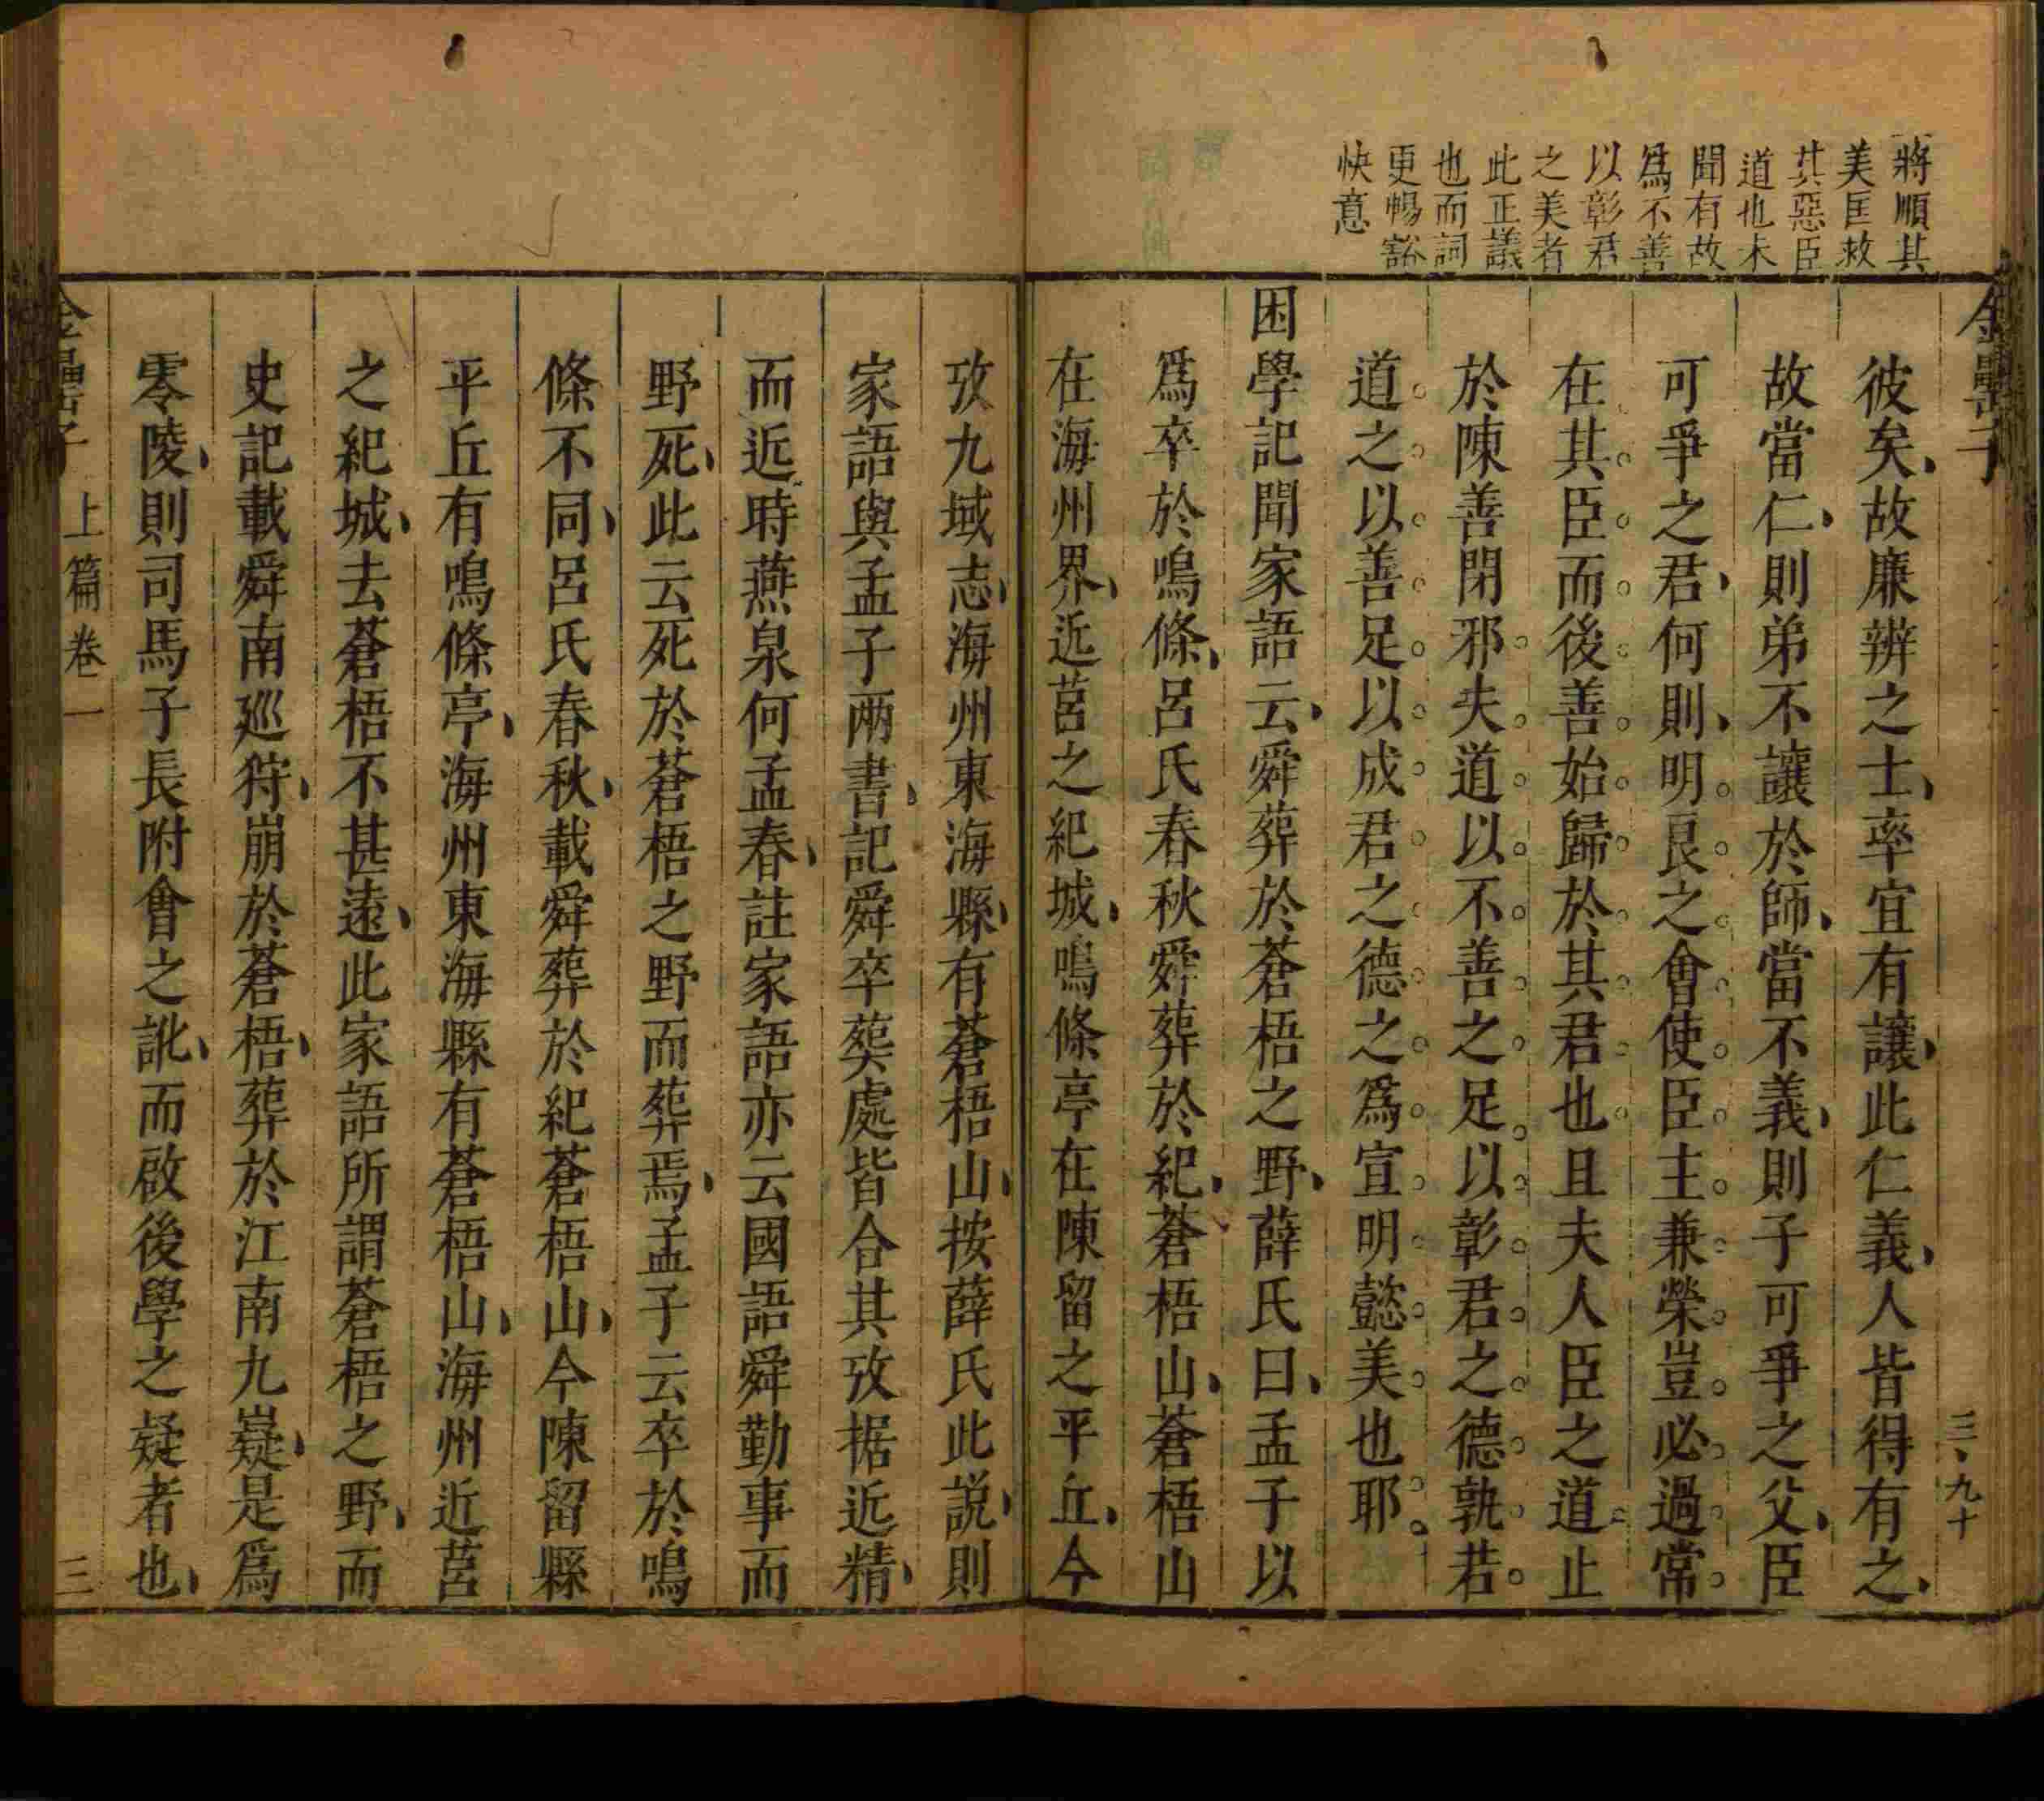 金罍子
三、九十
將順其
美匡救
其惡臣
道也未
聞有故
爲不善
以彰君
之美者
此正議
也而詞
更暢豁
快意
彼矣、故廉辨之士、率宜有讓、此仁義、人皆得有之、
故當仁、則弟不讓於師、當不義、則子可爭之父、臣
可爭之君、何則、明良之會使臣主兼榮豈必過常
在其臣而後善始歸於其君也且夫人臣之道止
於陳善閉邪夫道以不善之足以彰君之德孰若
道之以善足以成君之德之爲宣明懿美也耶
困學記聞家語云、舜葬於蒼梧之野、薛氏曰、孟子以
爲卒於鳴條、呂氏春秋舜葬於紀、蒼梧山、蒼梧山
在海州界、近莒之紀城、鳴條亭在陳留之平丘、今
攷九域志、海州東海縣、有蒼梧山、按薛氏此說、則
家語與孟子兩書、記舜卒葬處皆合其攷据近精、
而近時燕泉何孟春、註家語亦云國語舜勤事而
野死、此云死於蒼梧之野而葬焉、孟子云卒於鳴
條不同、呂氏春秋、載舜葬於紀蒼梧山、今陳留縣
平丘有鳴條亭、海州東海縣有蒼梧山、海州近莒
之紀城、去蒼梧不甚遠、此家語所謂蒼梧之野、而
史記載舜南廵狩、崩於蒼梧、葬於江南九嶷、是爲
零陵、則司馬子長附會之訛、而啟後學之疑者也、
金罍子 上篇卷一 三